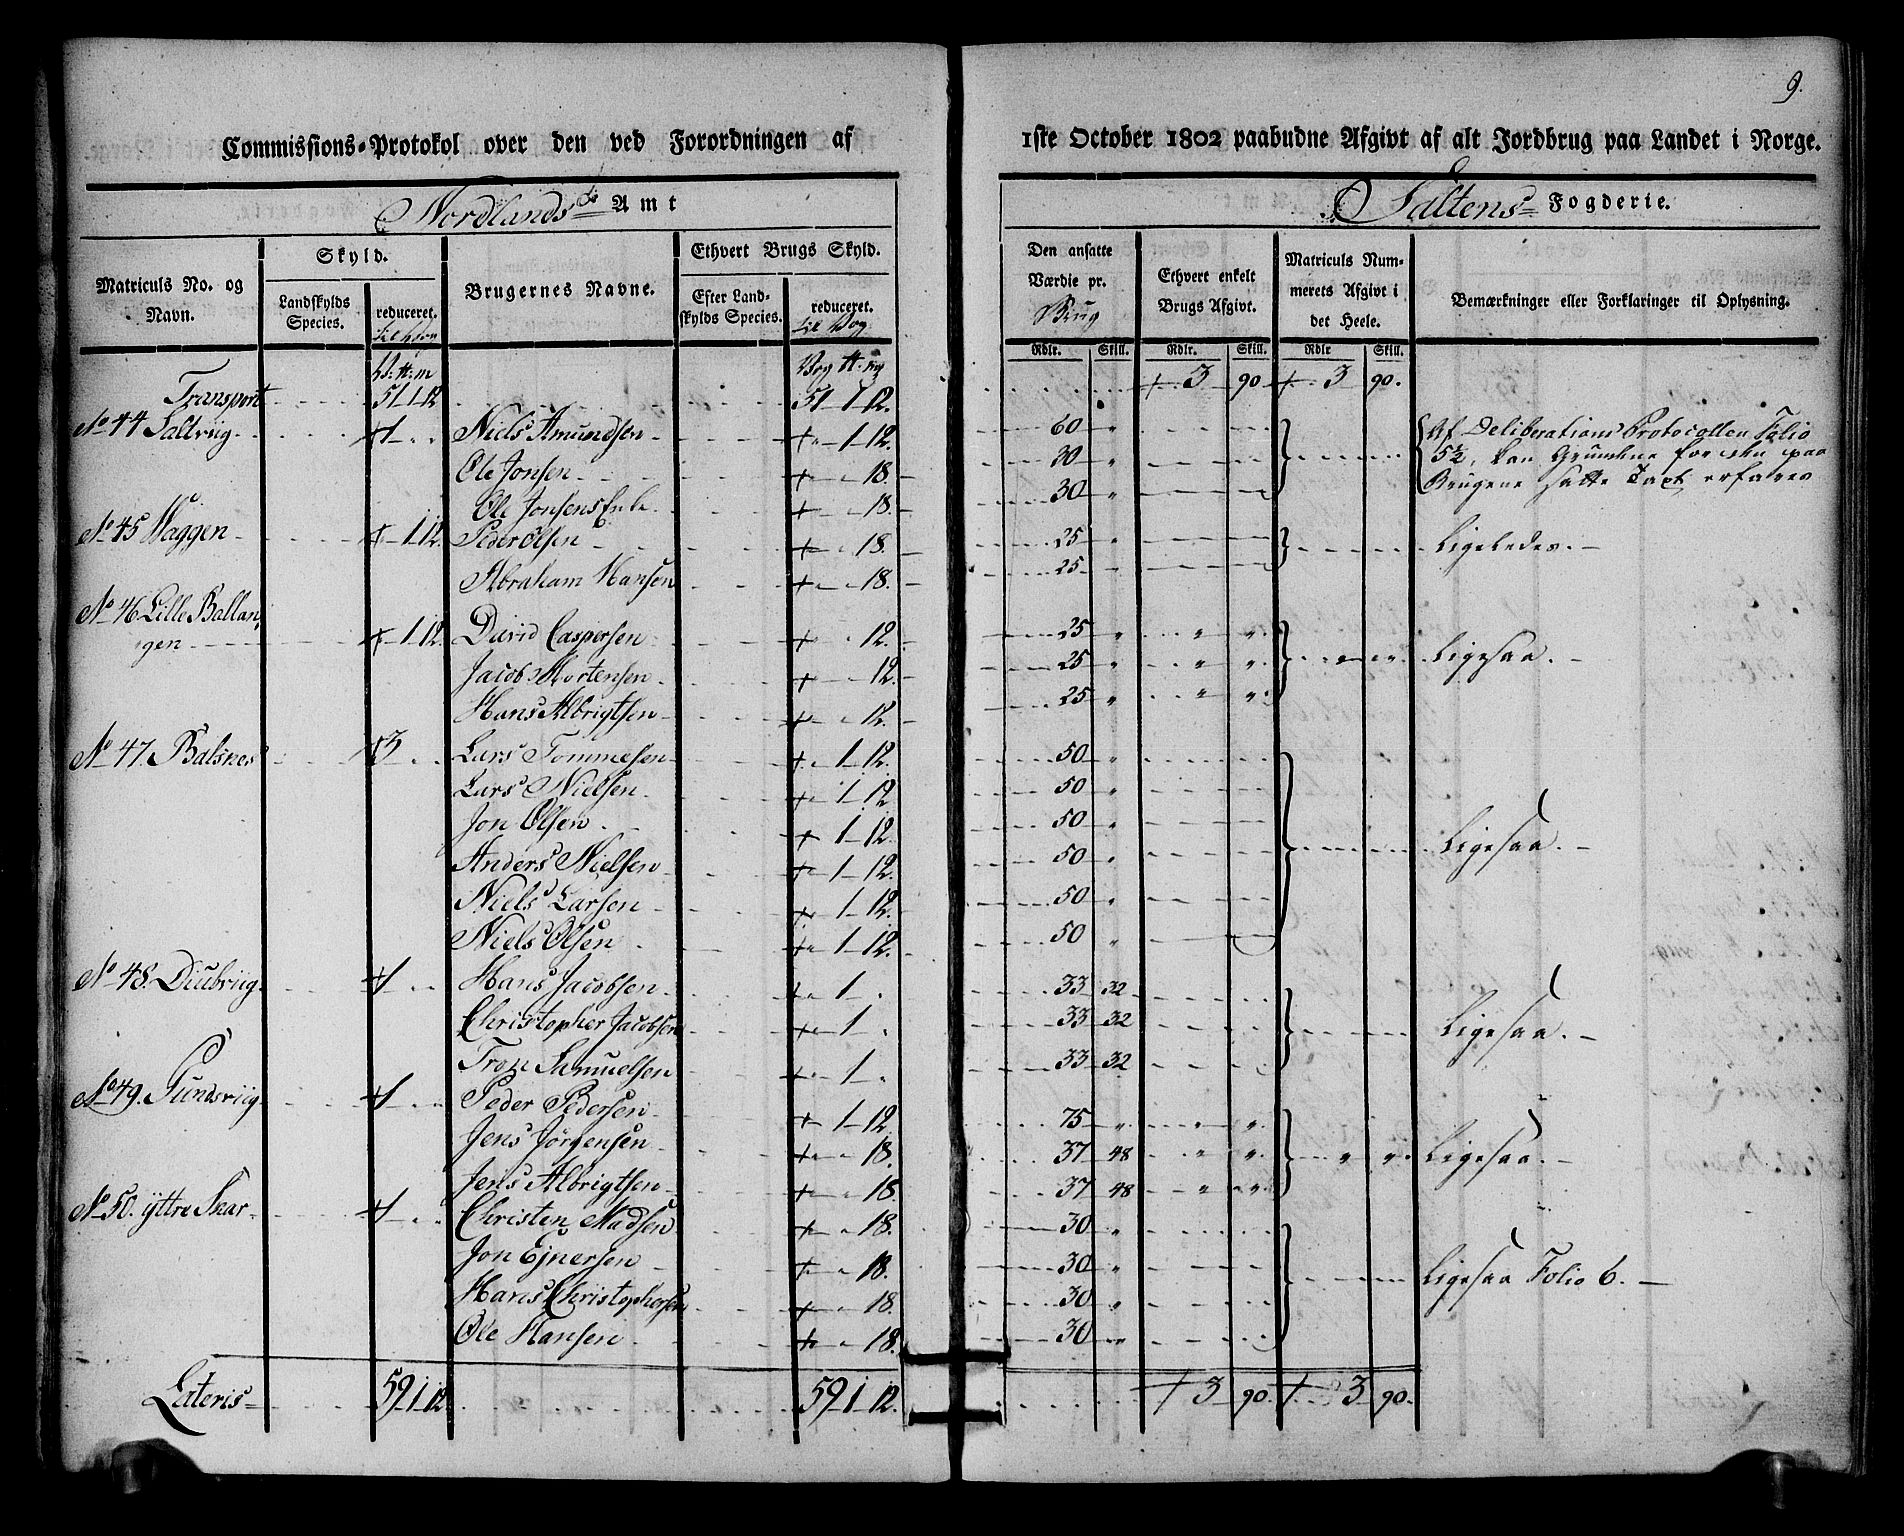 9.
Commissions-Protokol over den ved Forordningen af 1ste October 1802 paabudne Afgivt af alt Jordbrug paa Landet i Norge.
Nordlands Amt
Saltens Fogderie.
Matriculs No. og Navn.
Skyld.
Landskylds Species.
reduceret.
Brugernes Navne.
Ethvert Brugs Skyld.
Efter Landskylds Species.
reduceret.
til Vog
Den ansatte Værdie pr. Brug
Ethvert enkelt Brugs Afgivt.
Matriculs Nummerets Afgivt i det Heele.
Bemærkninger eller Forklaringer til Oplysning.
Rdlr. Skill. Rdlr. Skill. Rdlr Skill.
Transport 51-1-12 51-1-12. 3 90 3 90.
No 44 Saltviig 1 Niels Amundsen 1-12. 60 " Af Deliberations Protocollen Folio
Ole Jonsen 18. 30 " 5½, kan Grundene for den paa
Ole Jonsens Enke 18. 30 " Brugene satte Taxt erfares
No 45 Waggen 1 12. Peder Olsen 18. 25 Ligeledes.
Abraham Hansen 18. 25
No 46 Lille Ballan,
gen 1 12 David Caspersen 12. 25 " " " Ligesaa.
Jacob Mortensen 12. 25 " " "
Hans Albrigtsen 12. 25 " " "
No 47. Balsnes 3 Lars Tommesen 1-12. 50 "
Lars Nielsen 1-12 50 "
Jon Olsen 1-12. 50 "
Anders Nielsen 1-12. 50 " Ligesaa.
Niels Larsen 1-12. 50 "
Niels Olsen 1-12. 50 "
No 48. Diubviig 1 Hans Jacobsen 1 33 32
Christopher Jacobsen 1 33 32 Ligesaa.
Tron Samuelsen 1 33 32
No 49. Sundsviig 1 Peder Pedersen 1-12 75 " " "
Jens Jörgensen 18. 37 48 " " Ligesaa.
Jens Albrigtsen 18. 37 48 " "
No 50. ÿttre Skar 1 Christen Madsen 18. 30 "
Jon Ejnersen 18. 30 " Ligesaa Folio 6.
Hans Christophersen 18. 30 "
Ole Hansen 18. 30 "
Lateris 59 1 12 59-1-12. 3 90. 3 90.